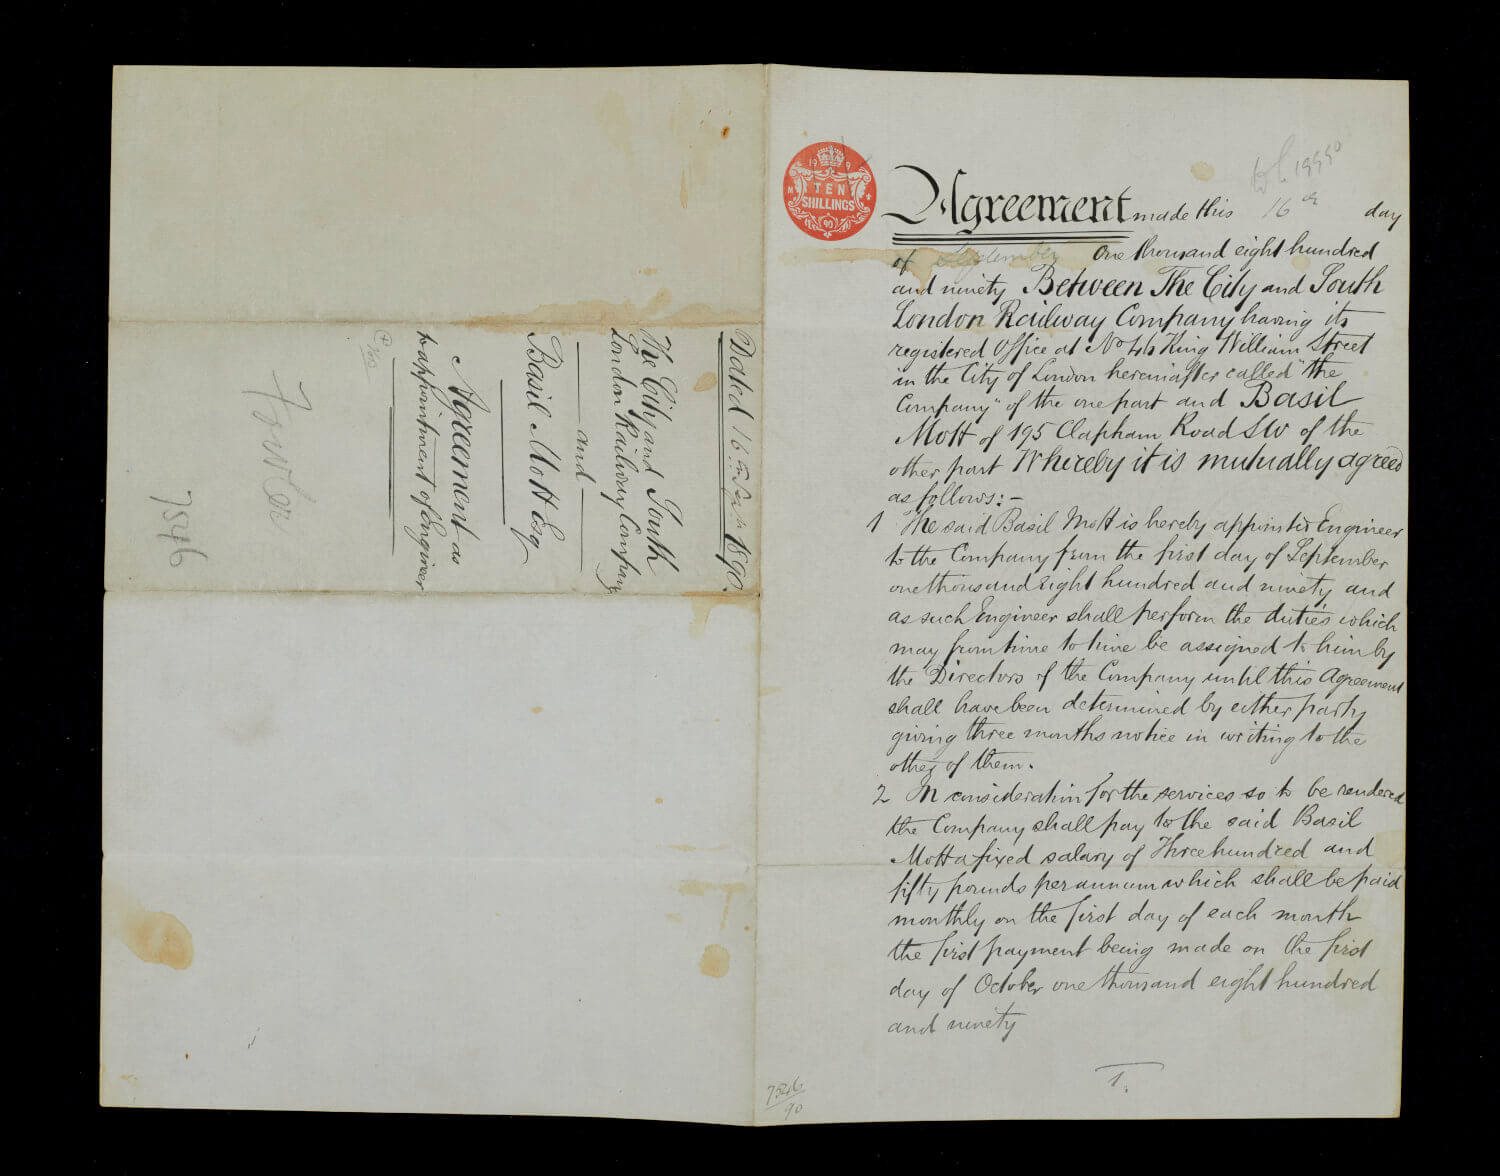 Dated 16th Sept 1890.
The City and South
London Railway Company
and
Basil Mott Esq
Agreement as
to appointment of Engineer
Fowler
7546
TEN
SHILLINGS
Agreement made this 16th day
of September One thousand eight hundred
and ninety Between The City and South
London Railway Company having its
registered Office at No 46 King William Street
in the City of London hereinafter called "the
Company" of the one part and Basil
Mott of 195 Clapham Road SW of the
other part Whereby it is mutually agreed
as follows:-
1 The said Basil Mott is hereby appointed Engineer
to the Company from the first day of September
one thousand eight hundred and ninety and
as such Engineer shall perform the duties which
may from time to time be assigned to him by
the Directors of the Company until this Agreement
shall have been determined by either party
giving three months notice in writing to the
other of them.
2 In consideration for the services so to be rendered
the Company shall pay to the said Basil
Mott a fixed salary of Three hundred and
fifty pounds per annum which shall be paid
monthly on the first day of each month
the first payment being made on the first
day of October one thousand eight hundred
and ninety
1.
7546
90